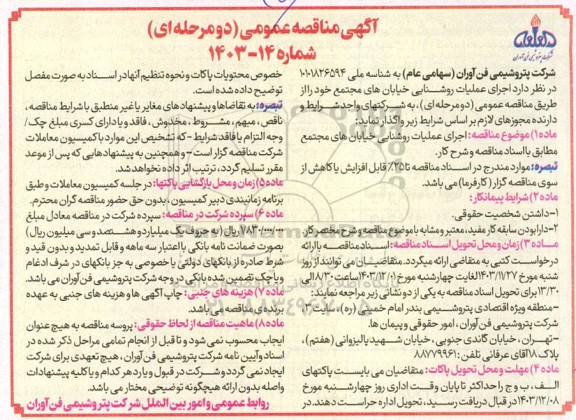 آگهی مناقصه عمومی (دو مرحله ای)
شماره ۱۴-۱۴۰۳
شرکت پتروشیمی فن آوران (سهامی عام) به شناسه ملی ۱۰۱۰۱۸۲۶۵۹۴
در نظر دارد اجرای عملیات روشنایی خیابان های مجتمع خود را از
طریق مناقصه عمومی (دو مرحله ای)، به شرکتهای واجد شرایط و
دارنده مجوزهای لازم بر اساس شرایط زیر واگذار نماید:
ماده ۱) موضوع مناقصه: اجرای عملیات روشنایی خیابان های مجتمع
مطابق با اسناد مناقصه و شرح کار.
تبصره: موارد مندرج در اسناد مناقصه تا ۲۵٪ قابل افزایش یا کاهش از
سوی مناقصه گزار (کارفرما) می باشد.
ماده ۲) شرایط پیمانکار:
۱-داشتن شخصیت حقوقی.
۲-دارا بودن سابقه کار مفید، معتبر و مشابه با موضوع مناقصه و شرح مختصر کار.
ماده ۳) زمان و محل تحویل اسناد مناقصه: اسناد مناقصه با ارائه
درخواست کتبی به متقاضی ارائه میگردد. متقاضیان می توانند از روز
شنبه مورخ ۱۴۰۳/۱۱/۲۷ لغایت چهارشنبه مورخ ۱۴۰۳/۱۲/۰۱ ساعت ۸/۳۰ الی
۱۳/۳۰ برای تحویل اسناد مناقصه به یکی از دو نشانی زیر مراجعه نمایند:
-منطقه ویژه اقتصادی پتروشیمی بندر امام خمینی (ره)، سایت ۲،
شرکت پتروشیمی فن آوران، امور حقوقی و پیمان ها.
-تهران، خیابان گاندی جنوبی، خیابان شهید پالیزوانی (هفتم)،
پلاک ۱۸ آقای عرفانی تلفن: ۸۸۷۷۹۹۶۱
ماده ۴) مهلت و محل تحویل پاکات: متقاضیان می بایست پاکتهای
الف، ب و ج را حداکثر تا پایان وقت اداری روز چهارشنبه مورخ
۱۴۰۳/۱۲/۰۸ در قبال دریافت رسید، تحویل اداره حراست دهند. در
خصوص محتویات پاکات و نحوه تنظیم آنها در اسناد به صورت مفصل
توضیح داده شده است.
تبصره: به تقاضاها و پیشنهادهای مغایر یا غیر منطبق با شرایط مناقصه،
ناقص، مبهم، مشروط، مخدوش، فاقد و یا دارای کسری مبلغ چک/
وجه التزام یا فاقد شرایط -که تشخیص این موارد با کمیسیون معاملات
شرکت مناقصه گزار است- و همچنین به پیشنهادهایی که پس از موعد
مقرر تسلیم گردد، ترتیب اثر داده نخواهد شد.
ماده ۵) زمان و محل بازگشایی پاکتها: در جلسه کمیسیون معاملات و طبق
برنامه زمانبندی دبیر کمیسیون، بدون حق حضور مناقصه گران محترم.
ماده ۶) سپرده شرکت در مناقصه: سپرده شرکت در مناقصه معادل مبلغ
ریال (به حروف یک میلیارد و هشتصد و سی میلیون ریال)
بصورت ضمانت نامه بانکی با اعتبار سه ماهه و قابل تمدید بدون قید و
شرط صادره از بانکهای دولتی یا خصوصی به جز بانکهای در شرف ادغام
و یا چک تضمین شده بانکی در وجه شرکت پتروشیمی فن آوران می باشد.
ماده ۷) هزینه های جنبی: چاپ آگهی ها و هزینه های جنبی به عهده
برنده ی مناقصه می باشد.
ماده ۸) ماهیت مناقصه از لحاظ حقوقی: پروسه مناقصه به هیچ عنوان
ایجاب محسوب نمی شود و تا قبل از انجام تمامی مراحل ذکر شده در
اسناد و آیین نامه شرکت پتروشیمی فن آوران، هیچ تعهدی برای شرکت
ایجاد نمی گردد و شرکت در قبول و یا رد هر کدام و یا کلیه پیشنهادات
واصله بدون ارائه هیچگونه توضیحی مختار می باشد.
روابط عمومی و امور بین الملل شرکت پتروشیمی فن آوران